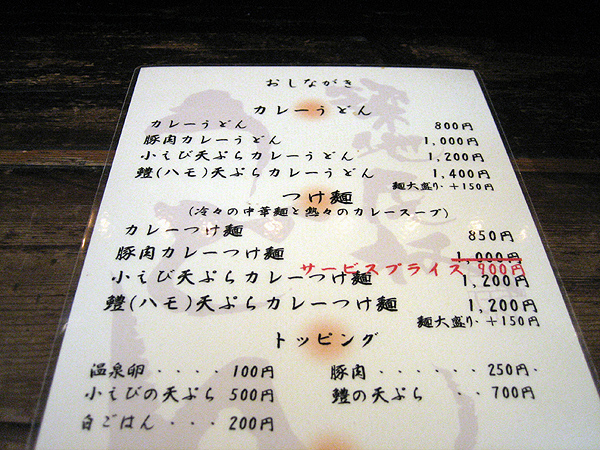 おしながき
カレーうどん
カレーうどん 800円
豚肉カレーうどん 1,000円
小えび天ぷらカレーうどん 1,200円
鱧(ハモ)天ぷらカレーうどん 1,400円
麺大盛り・+150円
つけ麺
(冷々の中華麺と熱々のカレースープ)
カレーつけ麺 850円
豚肉カレーつけ麺 1,000円
サービスプライス 900円
小えび天ぷらカレーつけ麺 1,200円
鱧(ハモ)天ぷらカレーつけ麺 1,200円
麺大盛り・+150円
トッピング
温泉卵・・・・100円 豚肉・・・・・・250円・
小えびの天ぷら 500円 鱧の天ぷら ・・700円
白ごはん・・・200円